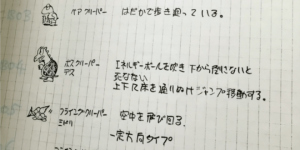 ケアクリーパー はだかで歩き返っている。
ボスクリーパー エネルギーボールを吹き 下から倒さないと
デス 死なない
上下に床を通りぬけジャンプ移動する。
フライングクリーパー 空中を飛び回る。
一定方向タイプ